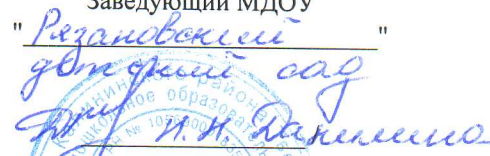 Заведующий МДОУ
"Рязановский"
детский сад
Н.Н. Данилина